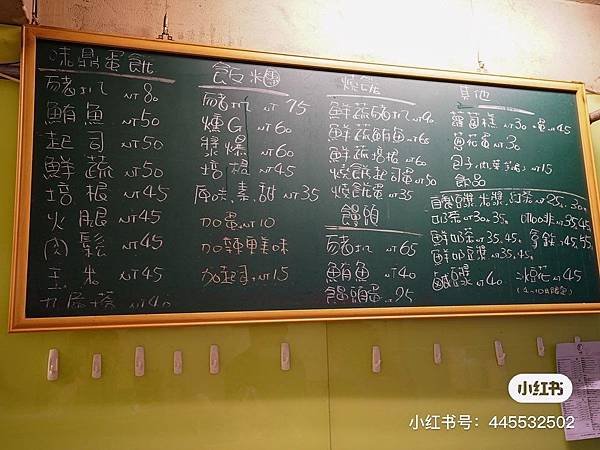 味鼎蛋餅
豬扒 NT 80
鮪魚 NT 50
起司 NT 50
鮮蔬 NT 50
培根 NT 45
火腿 NT 45
肉鬆 NT 45
玉米 NT 45
NT 40
飯糰
豬扒 NT 75
燻G NT 60
NT 60
培根 NT 45
原味.素.甜 NT 35
加蛋 NT 10
加辣 美味
加起司 NT 15
燒餅
鮮蔬豬扒 NT 90
鮮蔬鮪魚 NT 60
鮮蔬培根 NT 60
燒餅起司蛋 NT 50
燒餅蛋 NT 35
饅頭
豬扒 NT 65
鮪魚 NT 40
饅頭蛋 NT 25
其他
蘿蔔糕 NT 30 +蛋 NT 45
蔥花蛋 NT 30
包子(肉.菜.芋泥) NT 15
飲品
豆漿.米漿.紅茶 NT 25. 30
奶茶 NT 30.35. 咖啡 NT 35.45
鮮奶茶 NT 35.45. 拿鐵 NT 45.55
鮮奶豆漿 NT 35.45.
鹹豆漿 NT 40 NT 45
小红书
小红书号：445532502